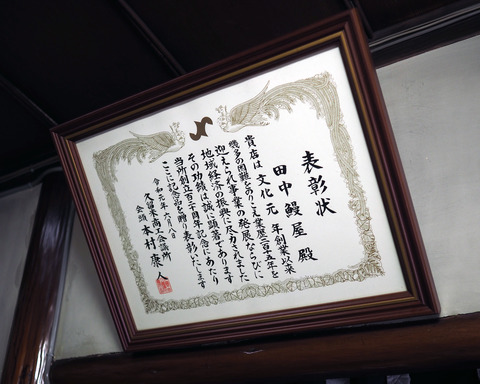 表彰状
田中鰻屋 殿
貴店は 文化元 年創業以来
幾多の困難をのりこえ業歴二百十五年を
迎えられ事業の発展ならびに
地域経済の振興に尽力されました
その功績は誠に顕著であります
当所創立百二十周年記念にあたり
ここに記念品を贈り表彰いたします
令和元年六月八日
久留米商工会議所
会頭 本村康人